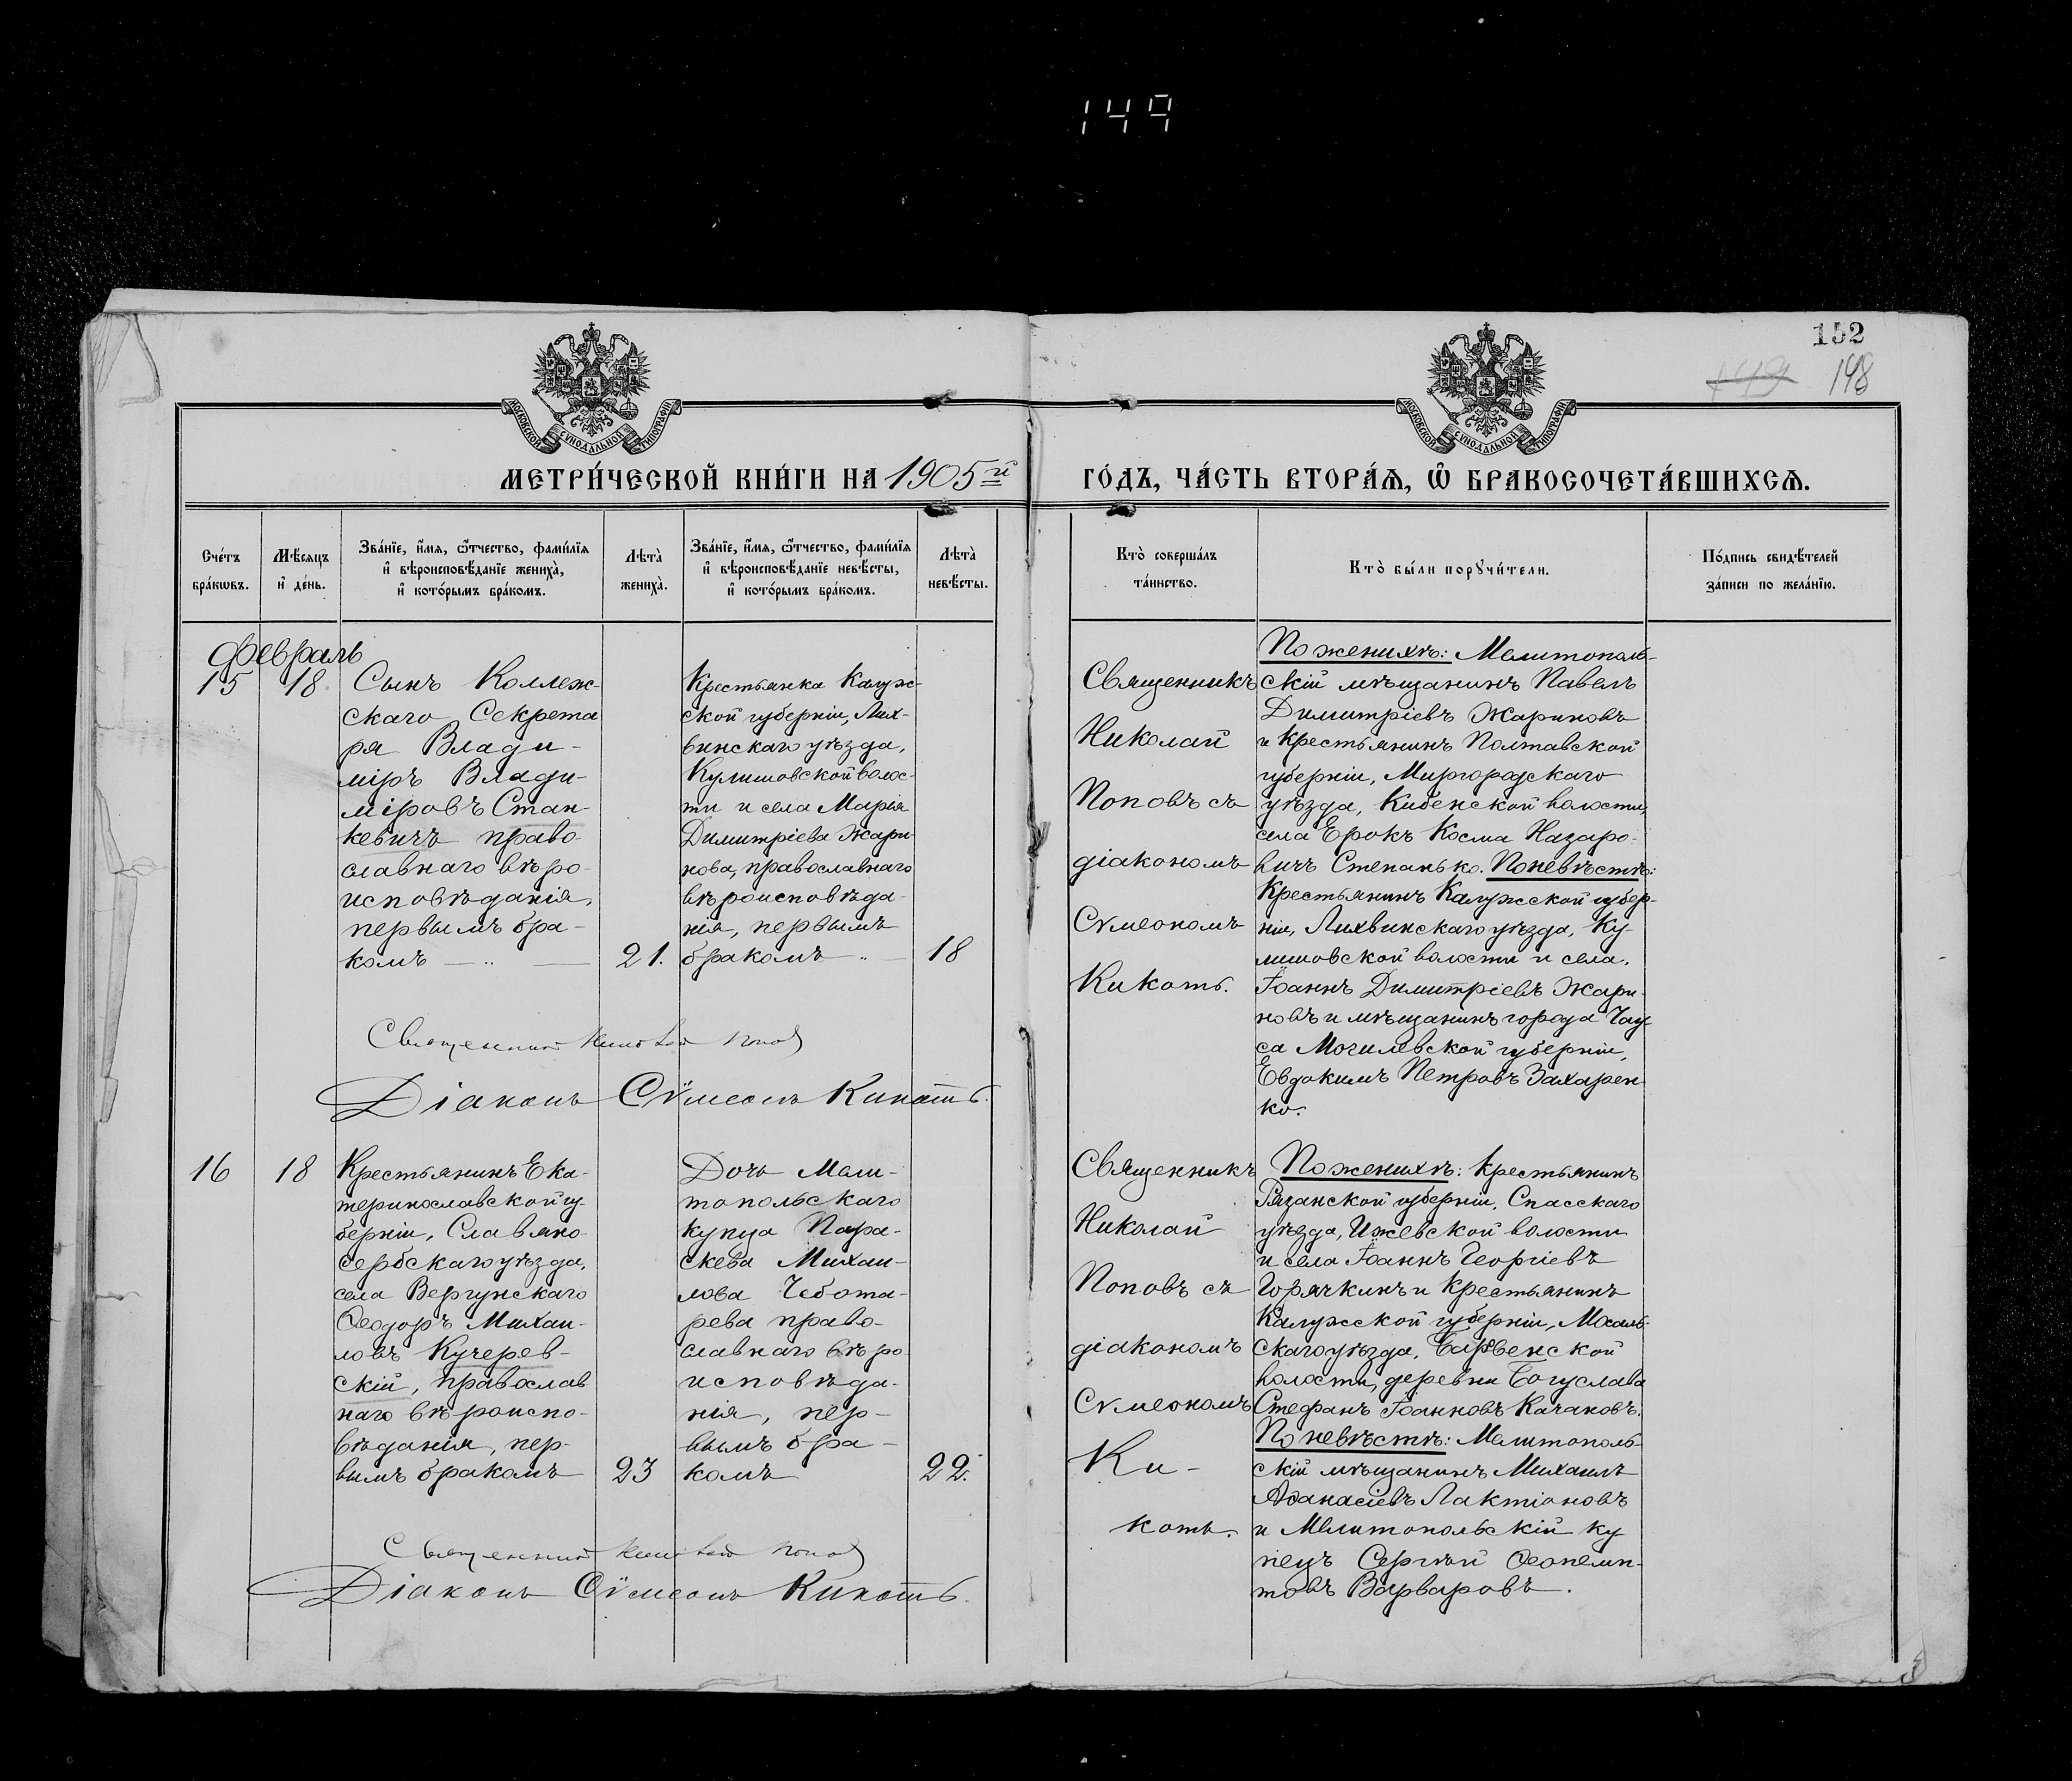 149
152
149 148
МОСКОВСКОЙ СУНОДАЛЬНОЙ ТИПОГРАФІИ
МОСКОВСКОЙ СУНОДАЛЬНОЙ ТИПОГРАФІИ
МЕТРИ́ЧЕСКОЙ КНИ́ГИ НА 1905й ГО́ДЪ, ЧА́СТЬ ВТОРА́Ѧ, Ѽ БРАКОСОЧЕТА́ВШИХСѦ.
Сче́тъ
бра́ковъ.
Мѣ́сяцъ
и҆ де́нь.
Зва́нїе, и҆́мя, ѻ҆́тчество, фами́лїя
и҆ вѣроисповѣ́данїе жениха̀,
и҆ кото́рымъ бра́комъ.
Лѣта̀
жениха̀.
Зва́нїе, и҆́мя, ѻ҆́тчество, фами́лїя
и҆ вѣроисповѣ́данїе невѣ́сты,
и҆ кото́рымъ бра́комъ.
Лѣта̀
невѣ́сты.
Кто̀ соверша́лъ
та́инство.
Кто̀ бы́ли порꙋчи́тели.
По́дпись свидѣ́телей
за́писи по жела́нїю.
Февраль
15 18
Сынъ Коллеж-
скаго Секрета
ря Влади-
міръ Влади-
міровъ Стан-
кевичъ право-
славнаго вѣро-
исповѣданія,
первымъ бра-
комъ — „ —
21.
Крестьянка Калуж-
ской губерніи, Лих-
винскаго уѣзда,
Кулишовской волос-
ти и села Марія
Димитріева Жари-
нова, православнаго
вѣроисповѣда-
нія, первымъ
бракомъ „ —
18
Священникъ
Николай
Поповъ съ
діакономъ
Сѵмеономъ
Кикоть.
По женихѣ: Мелитополь-
скій мѣщанинъ Павелъ
Димитріевъ Жариновъ
и крестьянинъ Полтавской
губерніи, Миргородскаго
уѣзда, Кибенской волости,
села Ерокъ Косма Назаро-
вичъ Степанько. По невѣстѣ:
Крестьянинъ Калужской губер-
ніи, Лихвинскаго уѣзда, Ку-
лишовской волости и села,
Іоаннъ Димитріевъ Жари-
новъ и мѣщанинъ города Чау-
са Могилевской губерніи,
Евдокимъ Петровъ Захарен-
ко.
Священникъ Николай Попов
Діаконъ Сѵмеонъ Кикоть.
16 18
Крестьянинъ Ека-
теринославской гу-
берніи, Славяно-
сербскаго уѣзда,
села Вергунскаго
Ѳеодоръ Михаи-
ловъ Кучерев-
скій, православ
наго вѣроиспо-
вѣданія, пер-
вымъ бракомъ
23
Дочь Мели-
топольскаго
купца Пара-
скева Михаи-
лова Чебота-
рева право-
славнаго вѣро
исповѣда-
нія, пер-
вымъ бра-
комъ
22.
Священникъ
Николай
Поповъ съ
діакономъ
Сѵмеономъ
Ки-
коть.
По женихѣ: крестьянинъ
Рязанской губерніи, Спасскаго
уѣзда, Ижевской волости
и села Іоаннъ Георгіевъ
Горячкинъ и крестьянинъ
Калужской губерніи, Мосаль-
скаго уѣзда,
волости, деревни Богуслава
Стефанъ Іоанновъ Качановъ.
По невѣстѣ: Мелитополь-
скій мѣщанинъ Михаилъ
Аѳанасіевъ Лактіоновъ
и Мелитопольскій ку-
пецъ Сергѣй Ѳеопемп-
товъ Варваровъ.
Священникъ Николай Попов
Діаконъ Сѵмеонъ Кикоть.